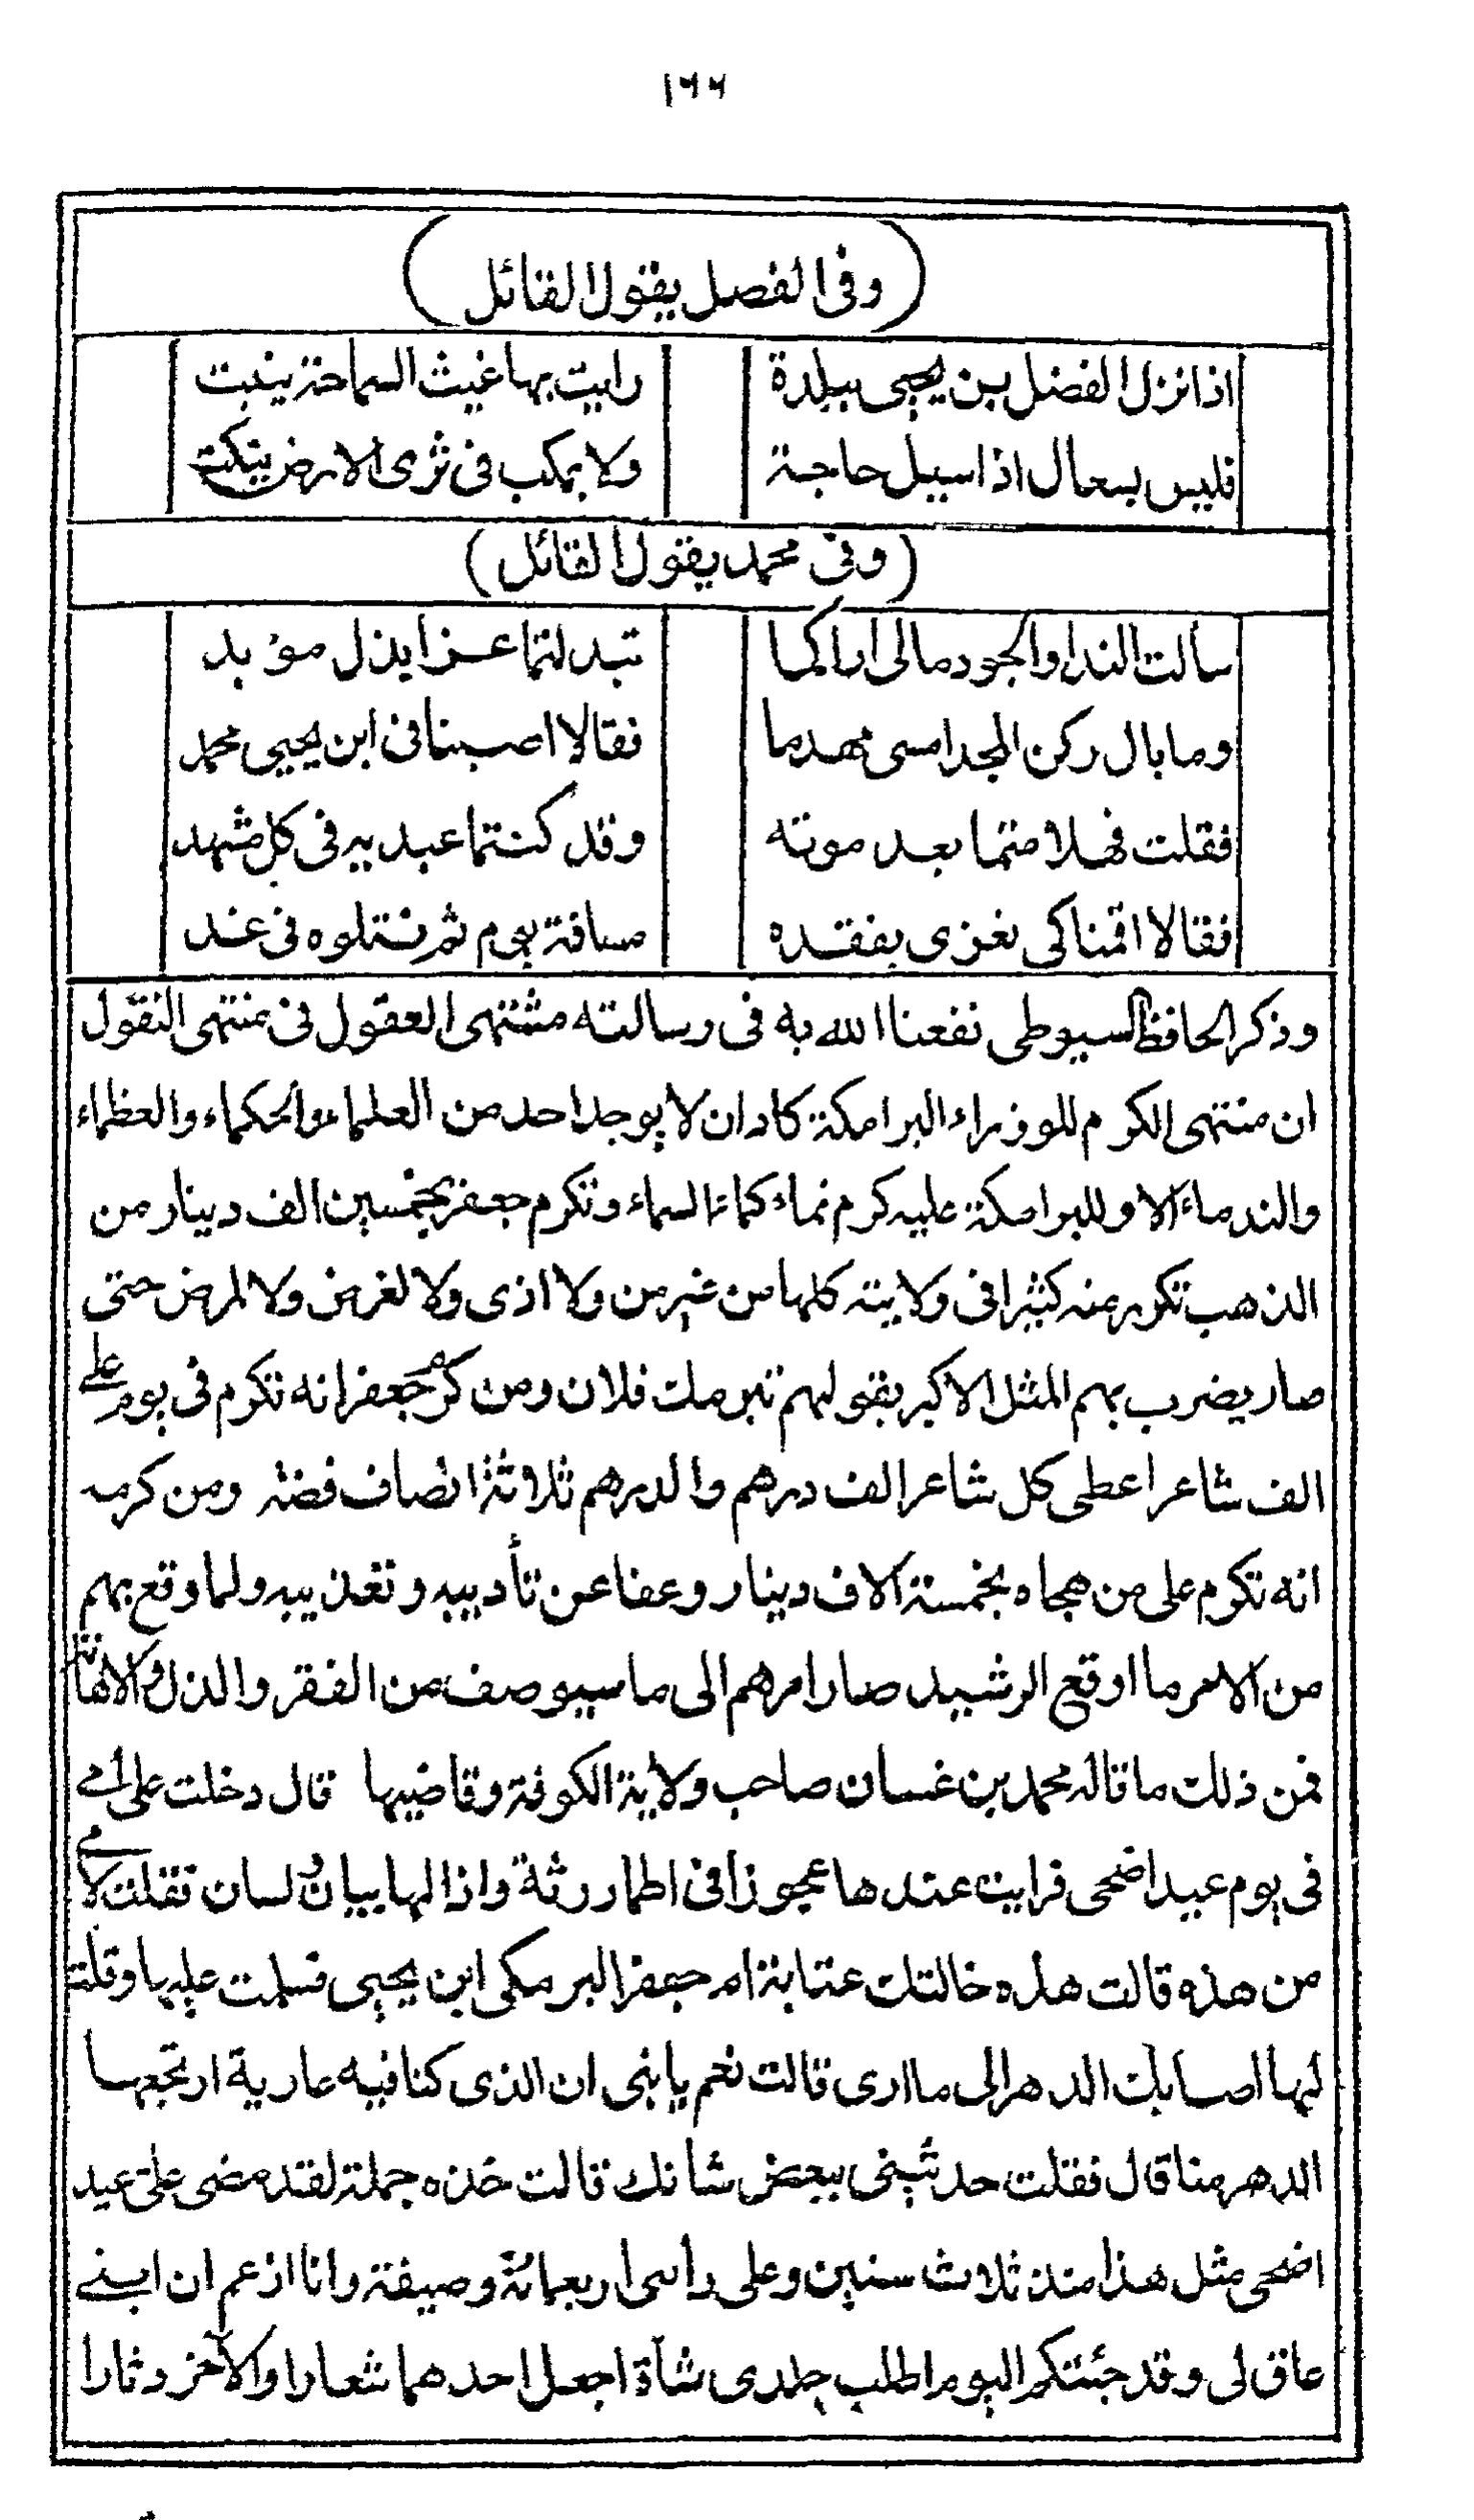 ١٦٦
(وفى الفصل يقول القائل)
اذا نزل الفضل بن يحيى ببلدة رايت بها غيث السماحة ينبت
فليس بسعال اذا سيل حاجة ولا بمكب فى ثرى الارض ينكت
(وفى محمد يقول القائل)
سالت الندا والجود مالى اراكما تبدلتما عزا بذل مؤبد
وما بال ركن المجد امسى مهدما فقالا اصبنا فى ابن يحيى محمد
فقلت فهلا متما بعد موته وقد كنتما عبديه فى كل مشهد
فقالا اقمنا كى نعزى بفقده مسافة يوم ثم نتلوه فى غد
وذكر الحافظ السيوطى نفعنا الله به فى رسالته مشتهى العقول فى منتهى النقول
ان منتهى الكرم للوزراء البرامكة كاد ان لا يوجد احد من العلماء والحكماء والعظماء
والندماء الا وللبرامكة عليه كرم نماء كماء السماء وتكرم جعفر بخمسين الف دينار من
الذهب تكرر منه كثيرا فى ولايته كلها من غير من ولا اذى ولا لغرض ولا لمرض حتى
صار يضرب بهم المثل الاكبر بقولهم تبرمك فلان ومن كرم جعفر انه تكرم فى يوم على
الف شاعر اعطى كل شاعر الف درهم والدرهم ثلاثة انصاف فضة ومن كرمه
انه تكرم على من هجاه بخمسة الاف دينار وعفا عن تأديبه وتعذيبه ولما وقع بهم
من الامر ما اوقع الرشيد صار امرهم الى ما سيوصف من الفقر والذل والاهانة
فمن ذلك ما قاله محمد بن غسان صاحب ولاية الكوفة وقاضيها قال دخلت على امى
فى يوم عيد اضحى فرايت عندها عجوزا فى اطمار رثة واذا لها بيان ولسان فقلت لامى
من هذه قالت هذه خالتك عتابة ام جعفر البرمكى ابن يحيى فسلمت عليها وقلت
لها اصابك الدهر الى ما ارى قالت نعم يا بنى ان الذى كنا فيه عارية ارتجعها
الدهر منا قال فقلت حدثينى ببعض شانك قالت خذه جملة لقد مضى على عيد
اضحى مثل هذا منذ ثلاث سنين وعلى راسى اربعمائة وصيفة وانا ازعم ان ابنى
عاق لى وقد جئتكم اليوم اطلب جلدى شاة اجعل احدهما شعارا والآخر دثارا